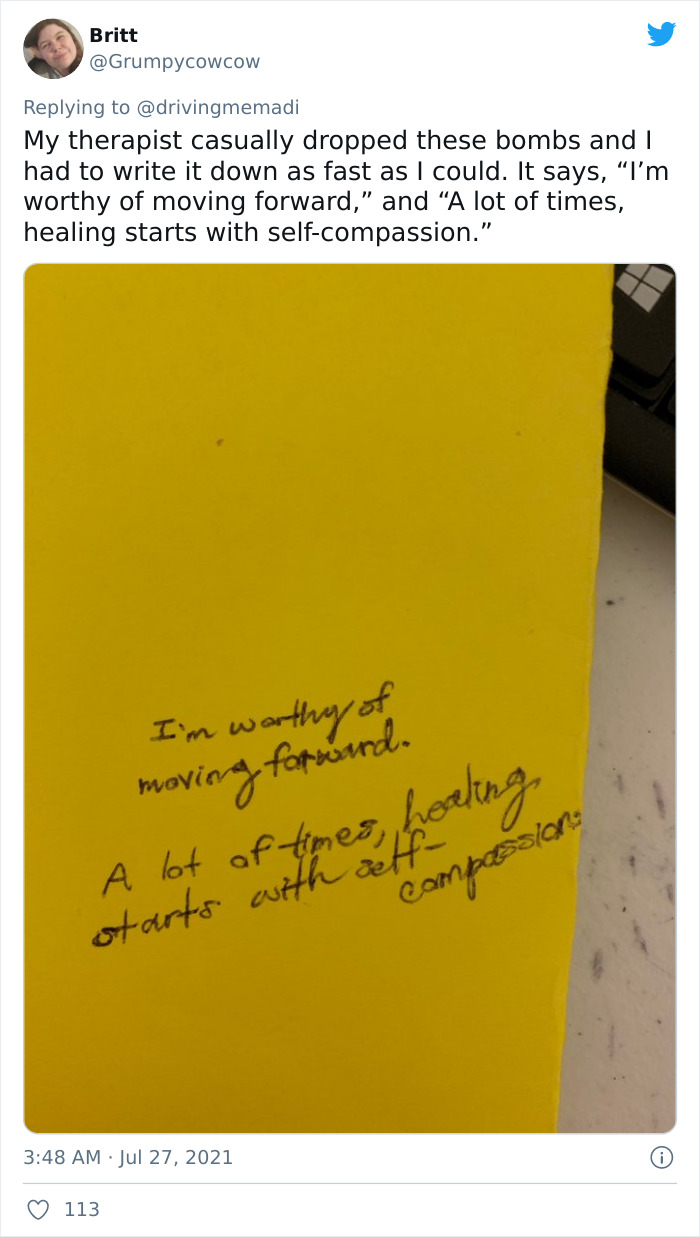 Britt
@Grumpycowcow
Replying to @drivingmemadi
My therapist casually dropped these bombs and I
had to write it down as fast as I could. It says, “I’m
worthy of moving forward,” and “A lot of times,
healing starts with self-compassion.”
I'm worthy of
moving forward.
A lot of times, healing
starts with self-
compassion.
3:48 AM · Jul 27, 2021
113